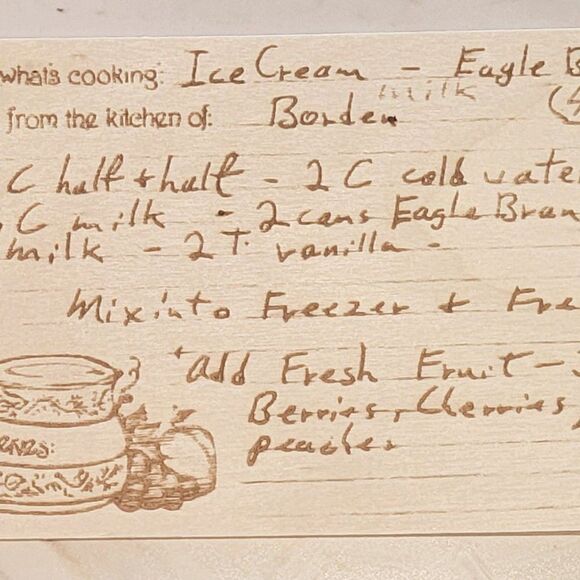 whats cooking: Ice Cream - Eagle B
milk
from the kitchen of: Borden (4
C half + half - 2 C cold wate
C milk - 2 cans Eagle Bran
milk - 2 T. vanilla -
Mix into Freezer + Fre
+ add Fresh Fruit -
Berries, Cherries,
peaches